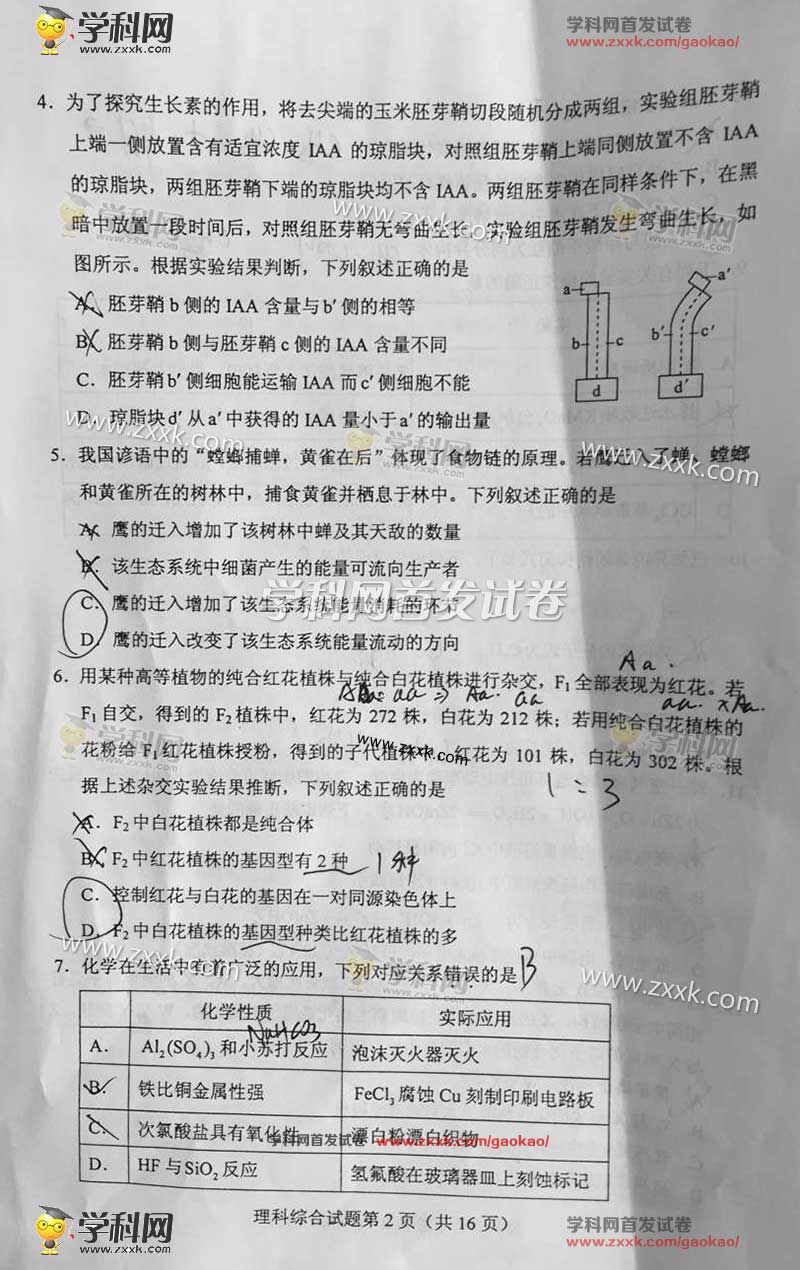 学科网
www.zxxk.com
学科网首发试卷
www.zxxk.com/gaokao/
4．为了探究生长素的作用，将去尖端的玉米胚芽鞘切段随机分成两组，实验组胚芽鞘
上端一侧放置含有适宜浓度 IAA 的琼脂块，对照组胚芽鞘上端同侧放置不含 IAA
的琼脂块，两组胚芽鞘下端的琼脂块均不含 IAA。两组胚芽鞘在同样条件下，在黑
暗中放置一段时间后，对照组胚芽鞘无弯曲生长，实验组胚芽鞘发生弯曲生长，如
图所示。根据实验结果判断，下列叙述正确的是
A．胚芽鞘 b 侧的 IAA 含量与 b′ 侧的相等
B．胚芽鞘 b 侧与胚芽鞘 c 侧的 IAA 含量不同
C．胚芽鞘 b′ 侧细胞能运输 IAA 而 c′ 侧细胞不能
D．琼脂块 d′ 从 a′ 中获得的 IAA 量小于 a′ 的输出量
a
b
c
d
a′
b′
c′
d′
5．我国谚语中的“螳螂捕蝉，黄雀在后”体现了食物链的原理。若鹰迁入了蝉、螳螂
和黄雀所在的树林中，捕食黄雀并栖息于林中。下列叙述正确的是
A．鹰的迁入增加了该树林中蝉及其天敌的数量
B．该生态系统中细菌产生的能量可流向生产者
C．鹰的迁入增加了该生态系统能量消耗的环节
D．鹰的迁入改变了该生态系统能量流动的方向
学科网首发试卷
6．用某种高等植物的纯合红花植株与纯合白花植株进行杂交，F₁ 全部表现为红花。若
Aa.
aa ⇒ Aa. aa
aa. × Aa.
F₁ 自交，得到的 F₂ 植株中，红花为 272 株，白花为 212 株；若用纯合白花植株的
花粉给 F₁ 红花植株授粉，得到的子代植株中，红花为 101 株，白花为 302 株。根
据上述杂交实验结果推断，下列叙述正确的是
1 : 3
A．F₂ 中白花植株都是纯合体
B．F₂ 中红花植株的基因型有 2 种
1种
C．控制红花与白花的基因在一对同源染色体上
D．F₂ 中白花植株的基因型种类比红花植株的多
7．化学在生活中有着广泛的应用，下列对应关系错误的是
B
化学性质 实际应用
NaHCO3
A． Al₂(SO₄)₃ 和小苏打反应 泡沫灭火器灭火
B． 铁比铜金属性强 FeCl₃ 腐蚀 Cu 刻制印刷电路板
C． 次氯酸盐具有氧化性 漂白粉漂白织物
D． HF 与 SiO₂ 反应 氢氟酸在玻璃器皿上刻蚀标记
学科网首发试卷 www.zxxk.com/gaokao/
理科综合试题第 2 页（共 16 页）
学科网
www.zxxk.com
学科网首发试卷
www.zxxk.com/gaokao/